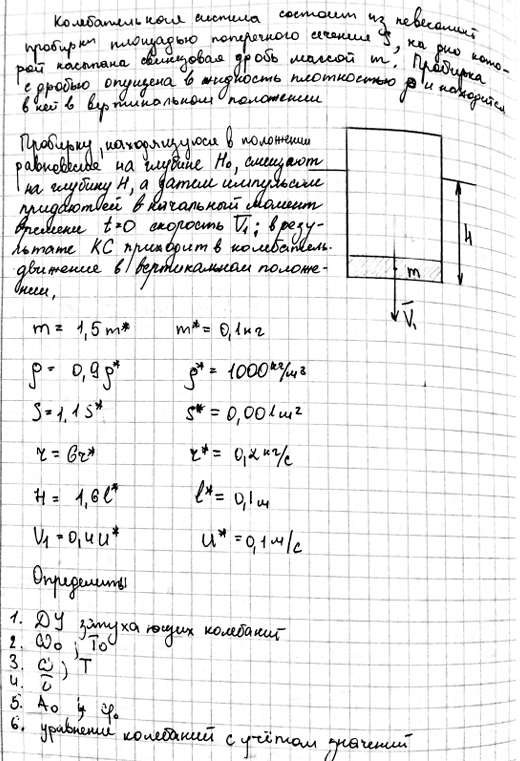 Колебательная система состоит из невесомой
пробирки площадью поперечного сечения S, на дно кото-
рой насыпана свинцовая дробь массой m. Пробирка
с дробью опущена в жидкость плотностью ρ и находится
в ней в вертикальном положении
Пробирку, находящуюся в положении
равновесия на глубине H₀, смещают
на глубину H, а затем импульсом
придают ей в начальный момент
времени t=0 скорость V̅₁; в резу-
льтате КС приходит в колебатель.
движение в вертикальном положе-
нии.
H
m
V̅₁
m = 1,5m* m* = 0,1кг
ρ = 0,9ρ* ρ* = 1000кг/м³
S = 1,1S* S* = 0,001м²
r = 6r* r* = 0,2кг/с
H = 1,6l* l* = 0,1м
V₁ = 0,4u* u* = 0,1м/с
Определить
1. ДУ затухающих колебаний
2. ω₀; T₀
3. ω; T
4.
5. A₀ и φ₀
6. уравнение колебаний с учётом значений